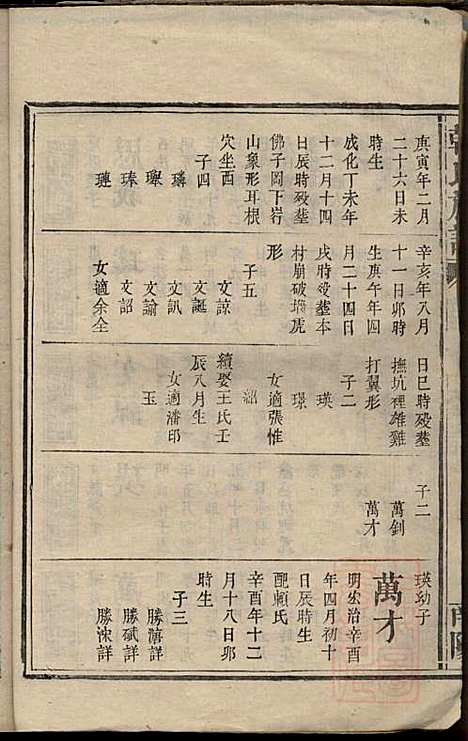 庚寅年二月
二十六日未
時生
成化丁未年
十二月十四
日辰時殁𦵏
佛子岡下嵙
山象形耳根
穴坐酉
子四
璘
璺
琫
璉
辛亥年八月
十一日卯時
生庚午年四
月二十四日
戌時殁𦵏本
村崩破塘虎
形
子五
文諒
文誕
文訊
文諭
文詔
女適余全
日巳時殁𦵏
撫坑裡雄雞
打翼形
子二
瑛
璟
女適張惟
紹
續娶王氏壬
辰八月生
女適潘邱
玉
子二
萬釗
萬才
瑛幼子
萬才
明宏治辛酉
年四月初十
日辰時生
配賴氏
辛酉年十二
月十八日卯
時生
子三
勝濤詳
勝斌詳
勝浤詳